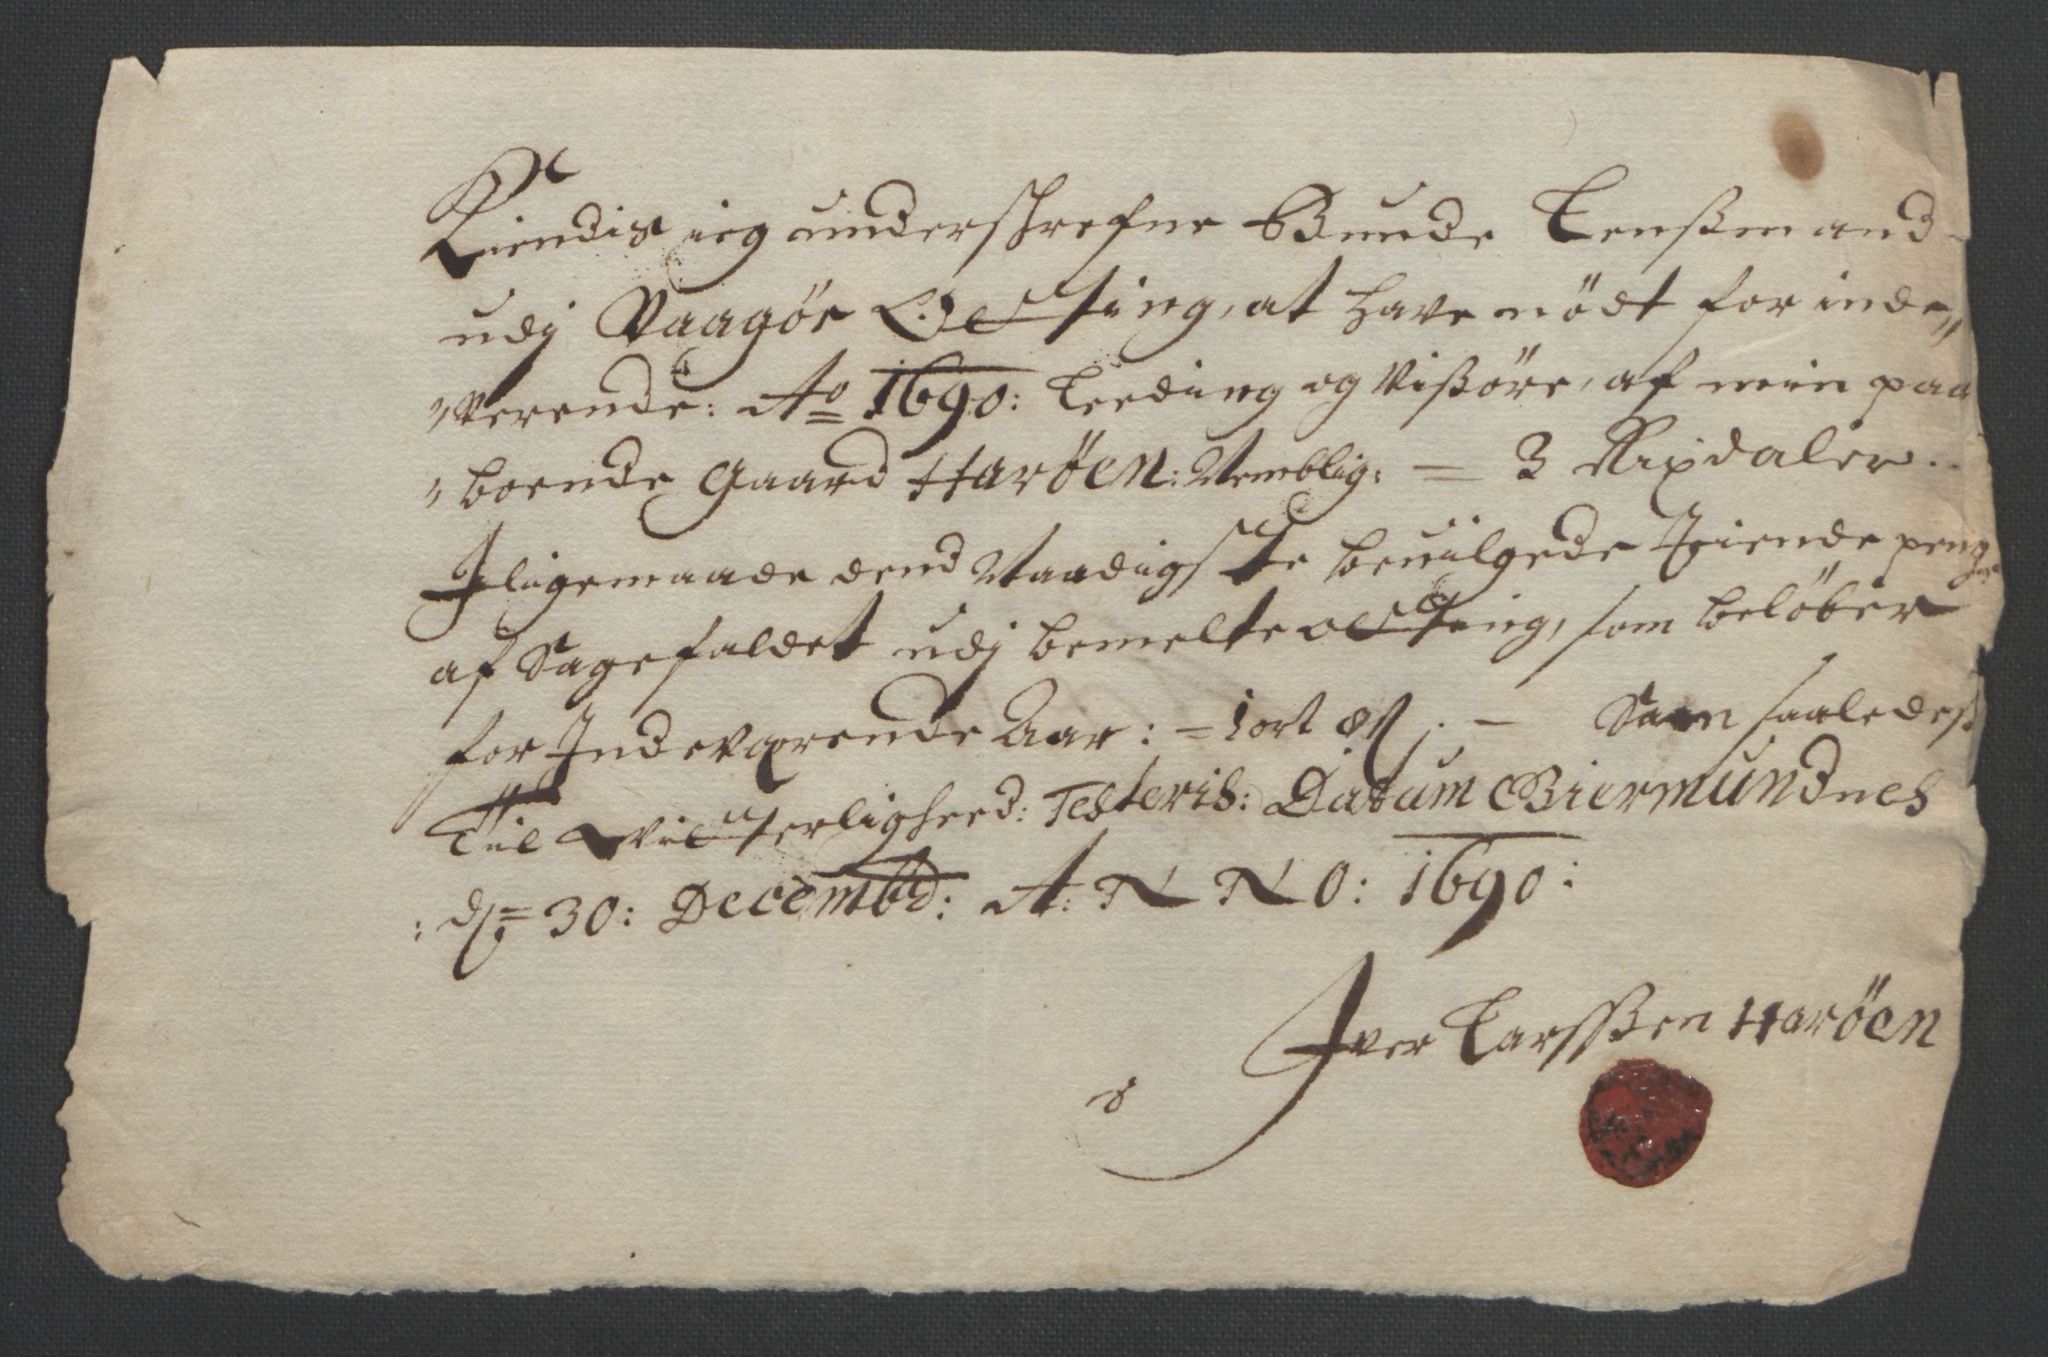 Kiendis ieg underschrefne Bunde Lenßmand
udj Vaagöe Octting, at have nödt for inde„
„verende: Ao 1690: Leeding og Vißöre, af min paa
„boende Gaard Haröen: Nemblig: — 3 Rixdaler.
Iligemaade dend Naadigste bevilgede Tiende peng
af Sagefaldet udj bemelte Octting, som belöber
for Indeværende Aar: = 1 ort — Sam saaledeß
Til Vitterligheed: Testeris: Datum Biermundnes
: d: 30: Decembd: A: N N O: 1690:
Iver Larssßen Haröen